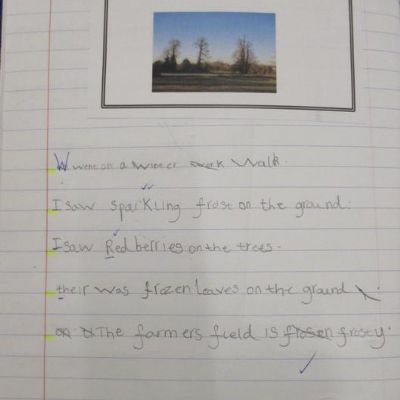 W went on a winter walk.
I saw sparkling frost on the ground.
I saw Red berries on the trees.
their was frozen leaves on the ground
The farmers field is frosey.